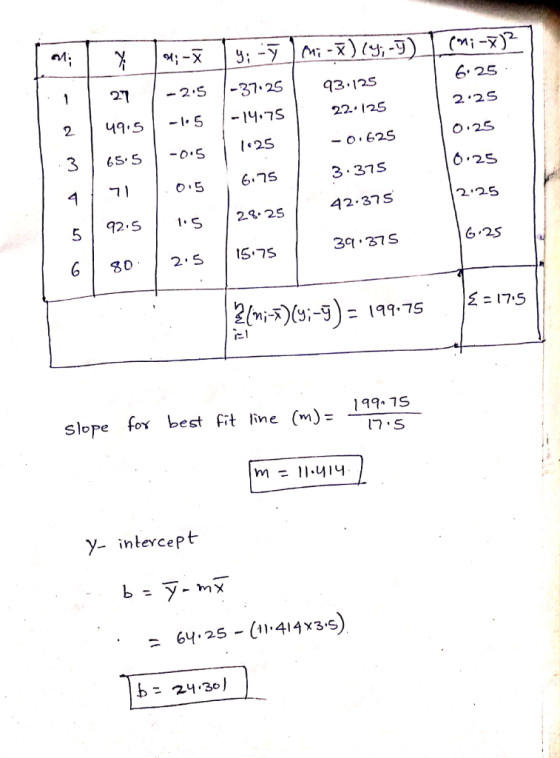 xi yi xi - x̄ yi - ȳ (xi - x̄) (yi - ȳ) (xi - x̄)²
1 27 -2.5 -37.25 93.125 6.25
2 49.5 -1.5 -14.75 22.125 2.25
3 65.5 -0.5 1.25 -0.625 0.25
4 71 0.5 6.75 3.375 0.25
5 92.5 1.5 28.25 42.375 2.25
6 80 2.5 15.75 39.375 6.25
n Σ i=1 (xi-x̄)(yi-ȳ) = 199.75 Σ = 17.5
slope for best fit line (m) = 199.75 / 17.5
m = 11.414
y- intercept
b = ȳ - mx̄
= 64.25 - (11.414x3.5)
b = 24.301